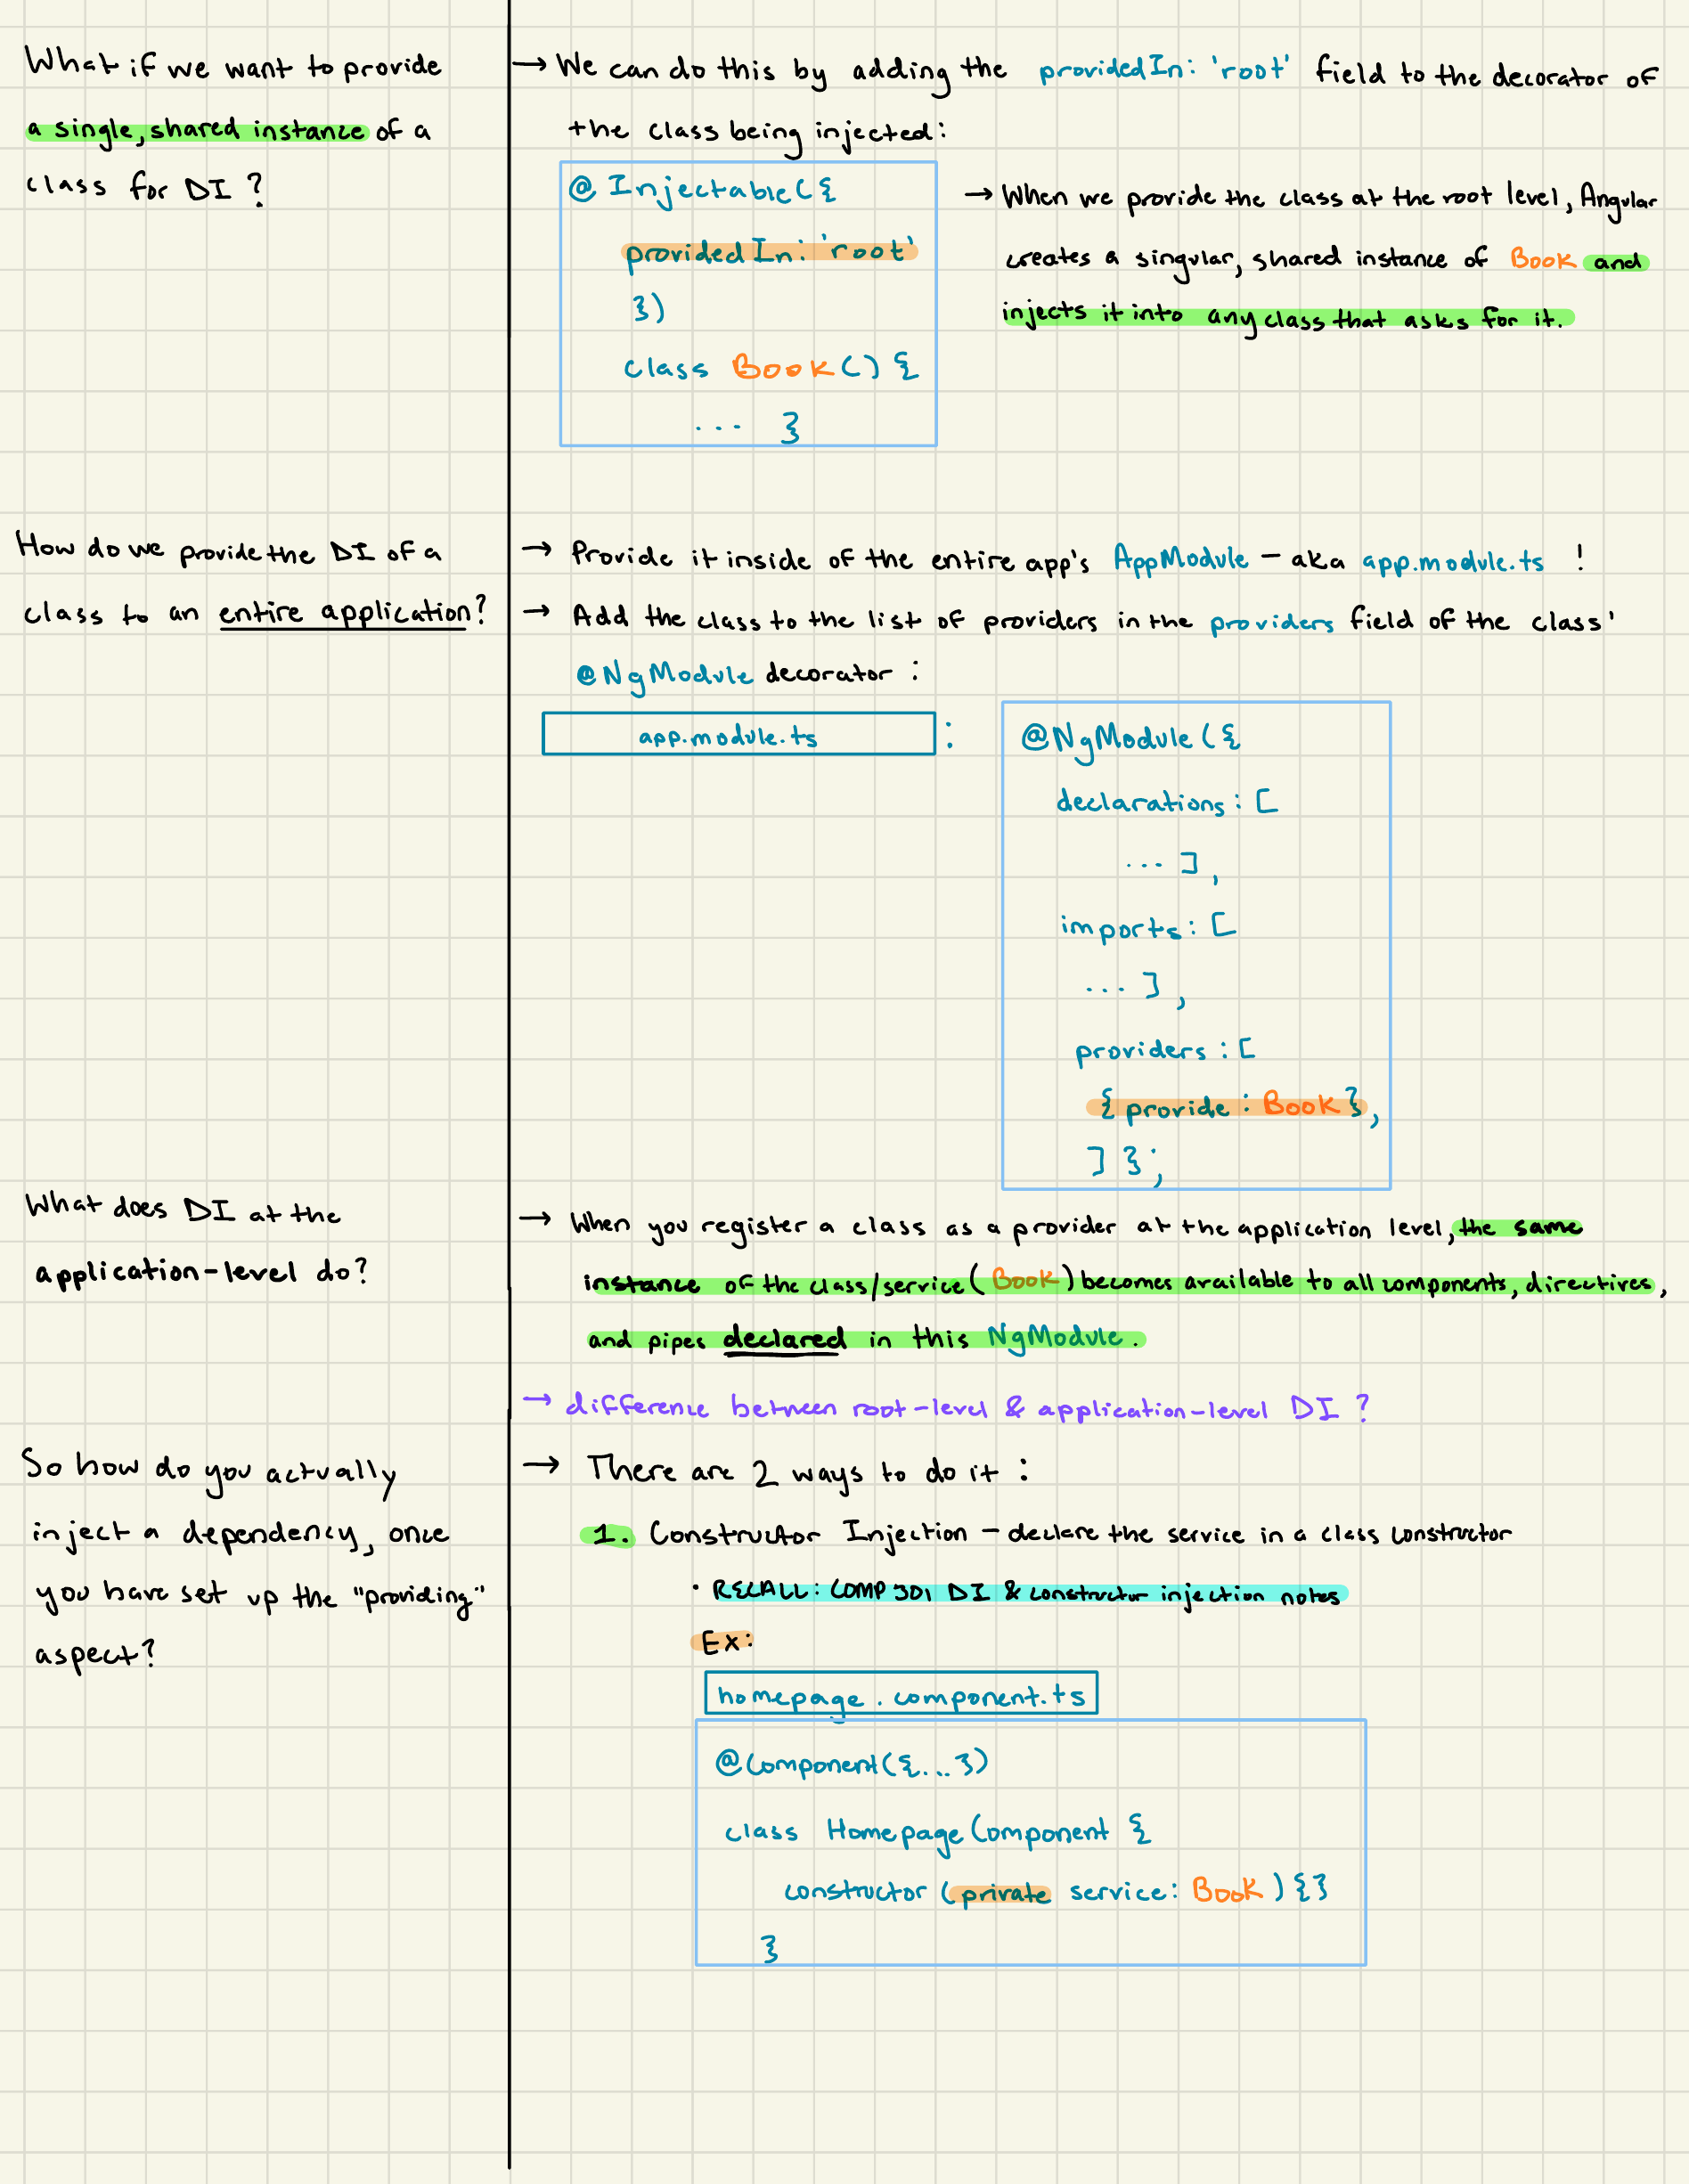 What if we want to provide
a single, shared instance of a
class for DI?
→ We can do this by adding the providedIn: 'root' field to the decorator of
the class being injected:
@Injectable({
providedIn: 'root'
})
class Book() {
... }
→ When we provide the class at the root level, Angular
creates a singular, shared instance of Book and
injects it into any class that asks for it.
How do we provide the DI of a
class to an entire application?
→ Provide it inside of the entire app's AppModule – aka app.module.ts !
→ Add the class to the list of providers in the providers field of the class'
@NgModule decorator :
app.module.ts :
@NgModule({
declarations: [
... ],
imports: [
... ],
providers: [
{ provide: Book },
] };
What does DI at the
application-level do?
→ When you register a class as a provider at the application level, the same
instance of the class/service (Book) becomes available to all components, directives,
and pipes declared in this NgModule.
→ difference between root-level & application-level DI?
So how do you actually
inject a dependency, once
you have set up the "providing"
aspect?
→ There are 2 ways to do it :
1. Constructor Injection – declare the service in a class constructor
· RECALL: COMP 301 DI & constructor injection notes
Ex:
homepage.component.ts
@Component({...})
class HomepageComponent {
constructor (private service: Book) {}
}